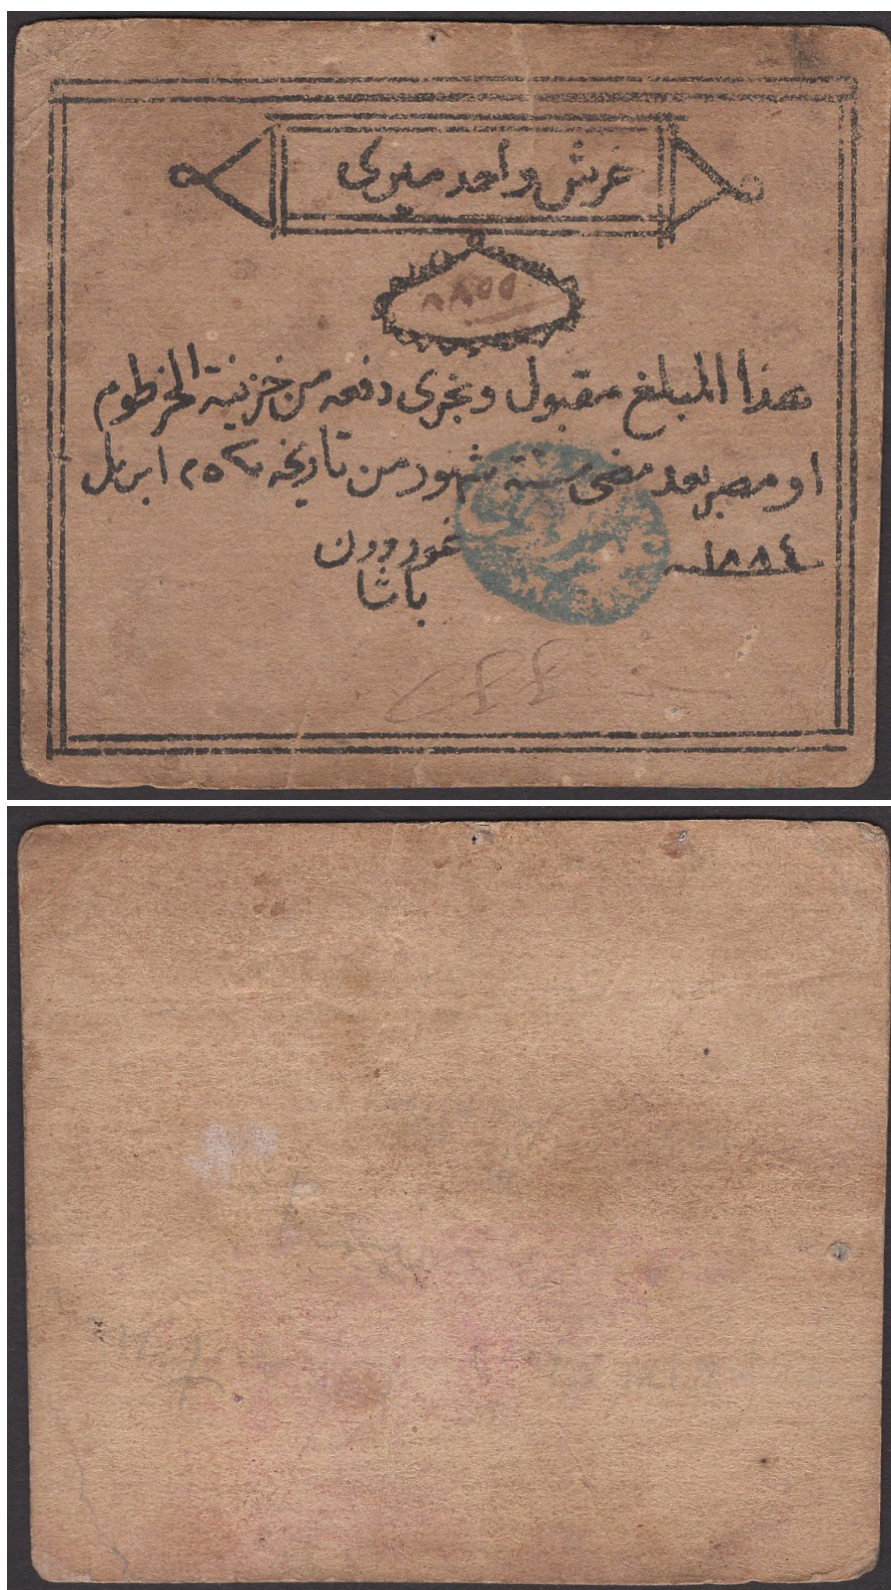 غرش واحد ميرى
هذا المبلغ مقبول ويجرى دفعه من خزينة الخرطوم
او مصر بعد مضى ستة شهور من تاريخه ٢٥ ابريل
١٨٨٤ سنه
غوردون
باشا